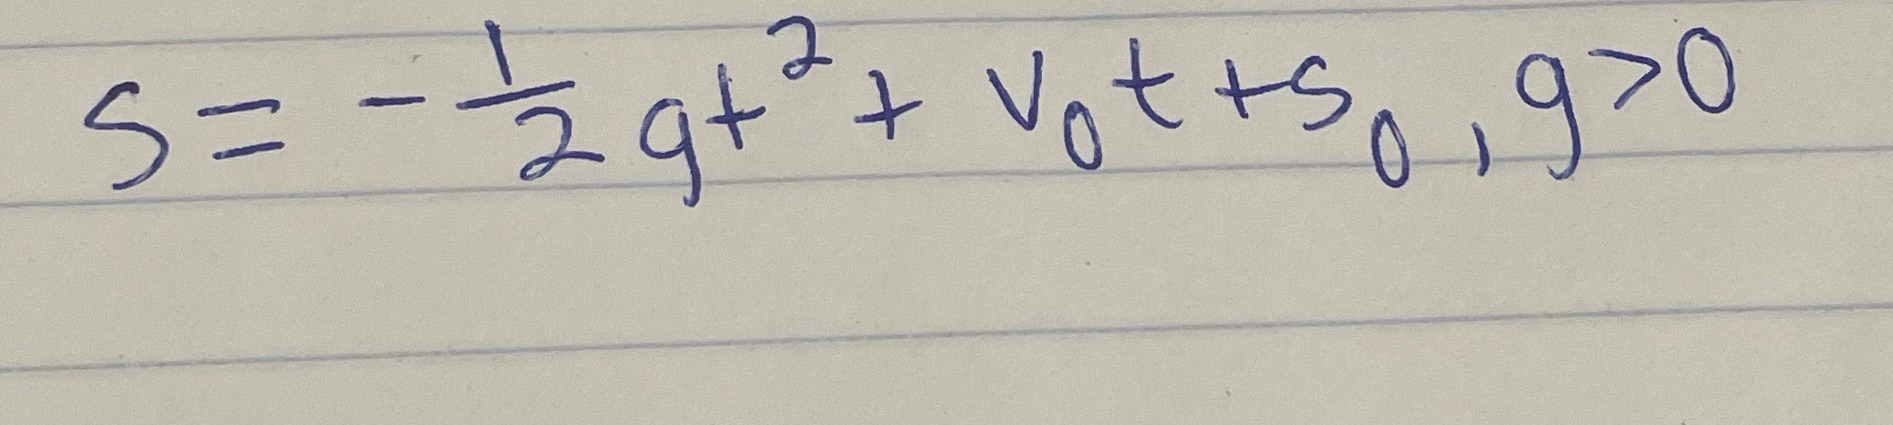 s = -\frac{1}{2}gt^2 + v_0t + s_0, g>0